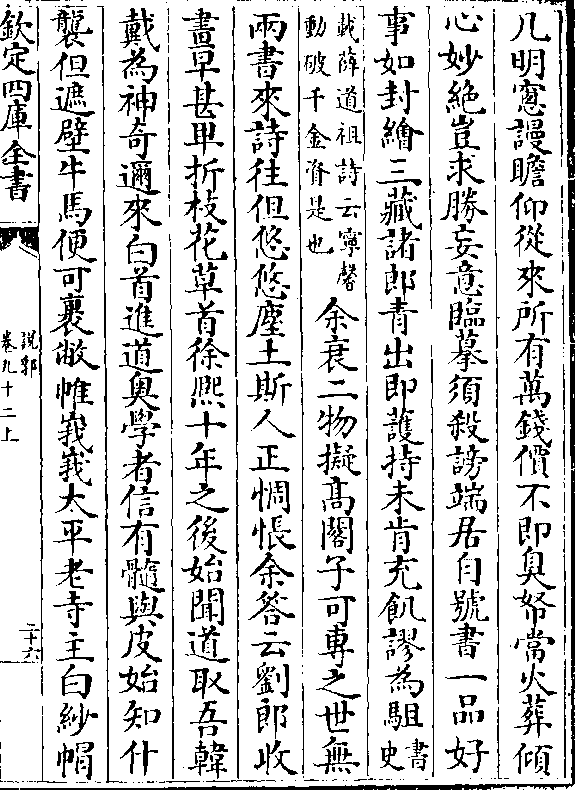 几明窓謾瞻仰從來所有萬錢價不即臭帑當火葬傾
心妙絶豈求勝妄意臨摹須殺謗端居自號書一品好
事如封繪三藏諸郎青出即䕶持未肯充飢謬為駔書史
載薛道祖詩云寧馨
動破千金資是也
余衰二物擬髙閣子可專之世無
兩書來詩往但悠悠塵土斯人正惆悵余答云劉郎收
畫早甚卑折枝花草首徐熙十年之後始聞道取吾韓
戴為神奇邇來白首進道奥學者信有髓與皮始知什
襲但遮壁牛馬便可裹敝帷峩峩太平老寺主白紗帽
欽定四庫全書
說郛
卷九十二上
二十六